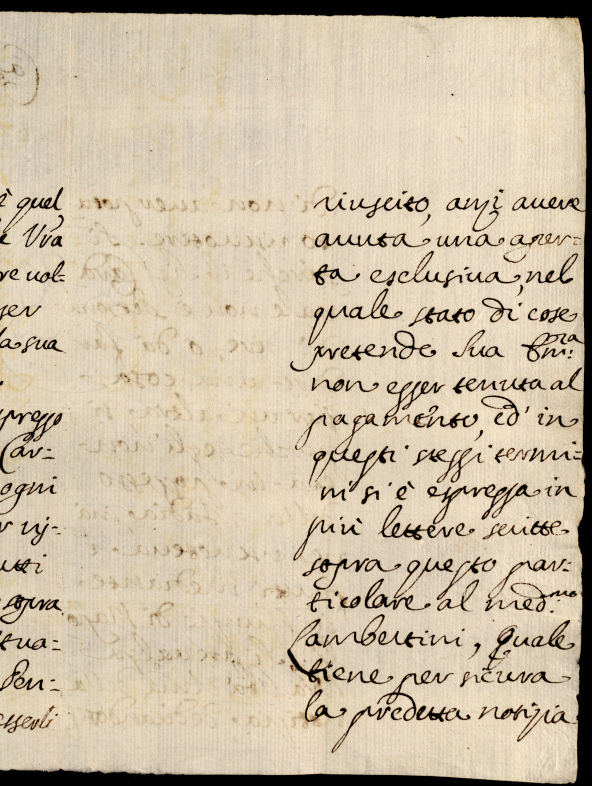 è quel
e Vra
re vol-
ser
la sua
presso
Car-
ogni
utti
sopra
tua-
Pen-
esserli
riuscito, anzi avere
avuta una aper-
ta esclusiva, nel
quale stato di cose
pretende Sua Em:za
non esser tenuta al
pagamento, ed' in
questi stessi termi-
ni si è espressa in
più lettere scritte
sopra questo par-
ticolare al med:mo
Lambertini, quale
tiene per sicura
la predetta notizia